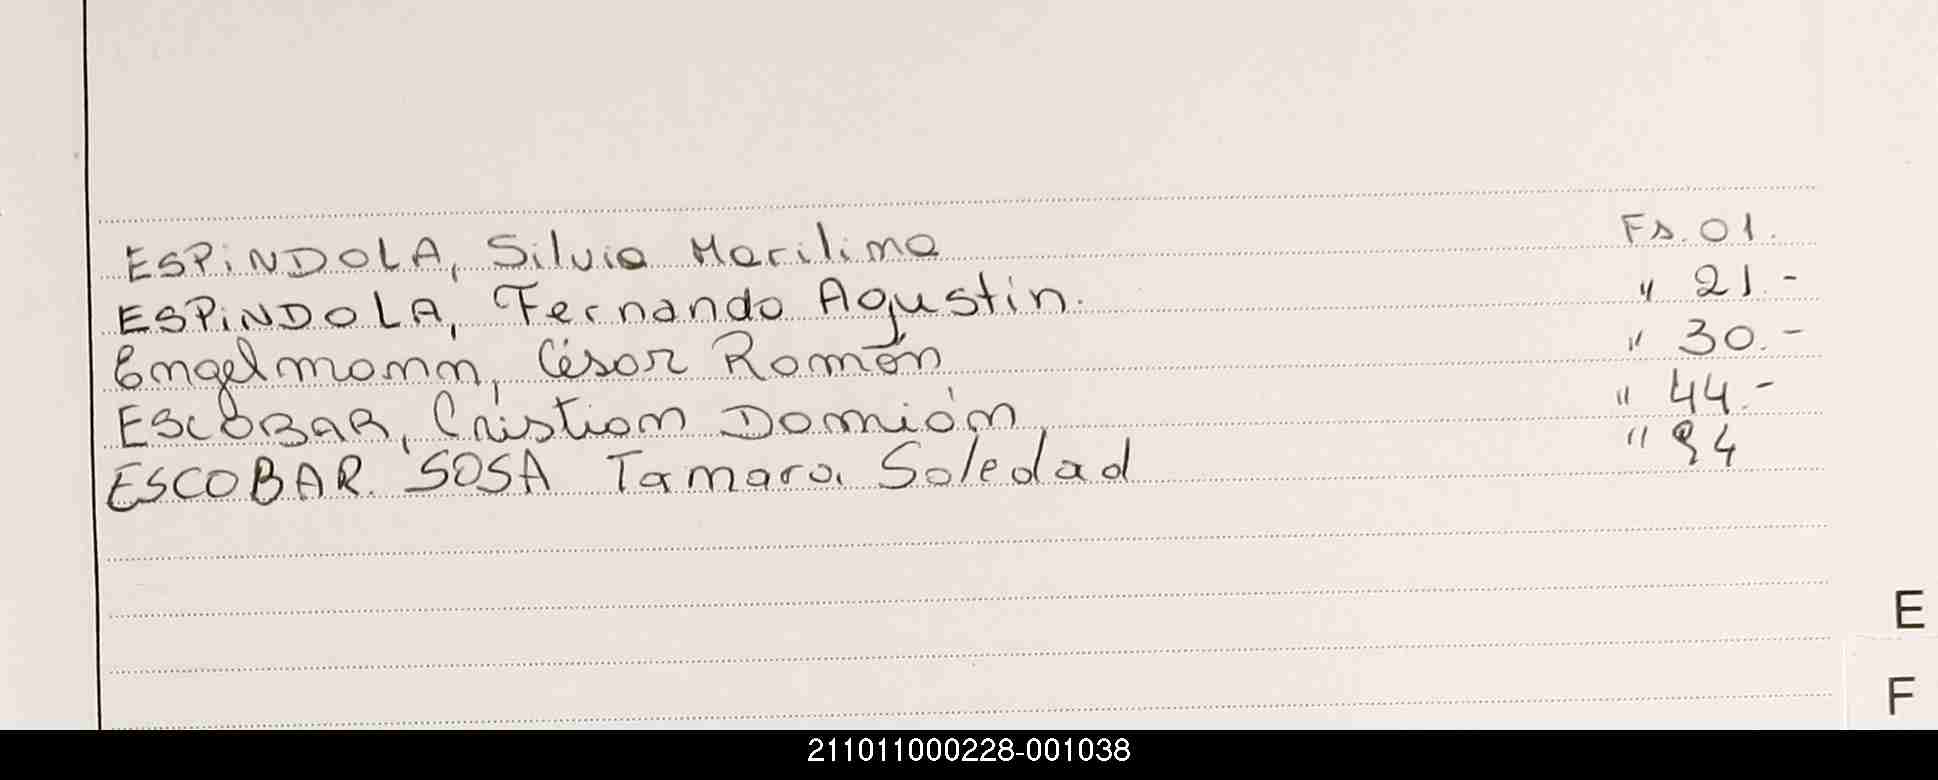 ESPiNDOLA, Silvia Marilina Fs. 01.
ESPiNDOLA, Fernando Agustin. " 21.-
Engelmann, César Román " 30.-
ESCOBAR, Cristian Damián " 44.-
ESCOBAR SOSA Tamara Soledad " 94
E
F
211011000228-001038